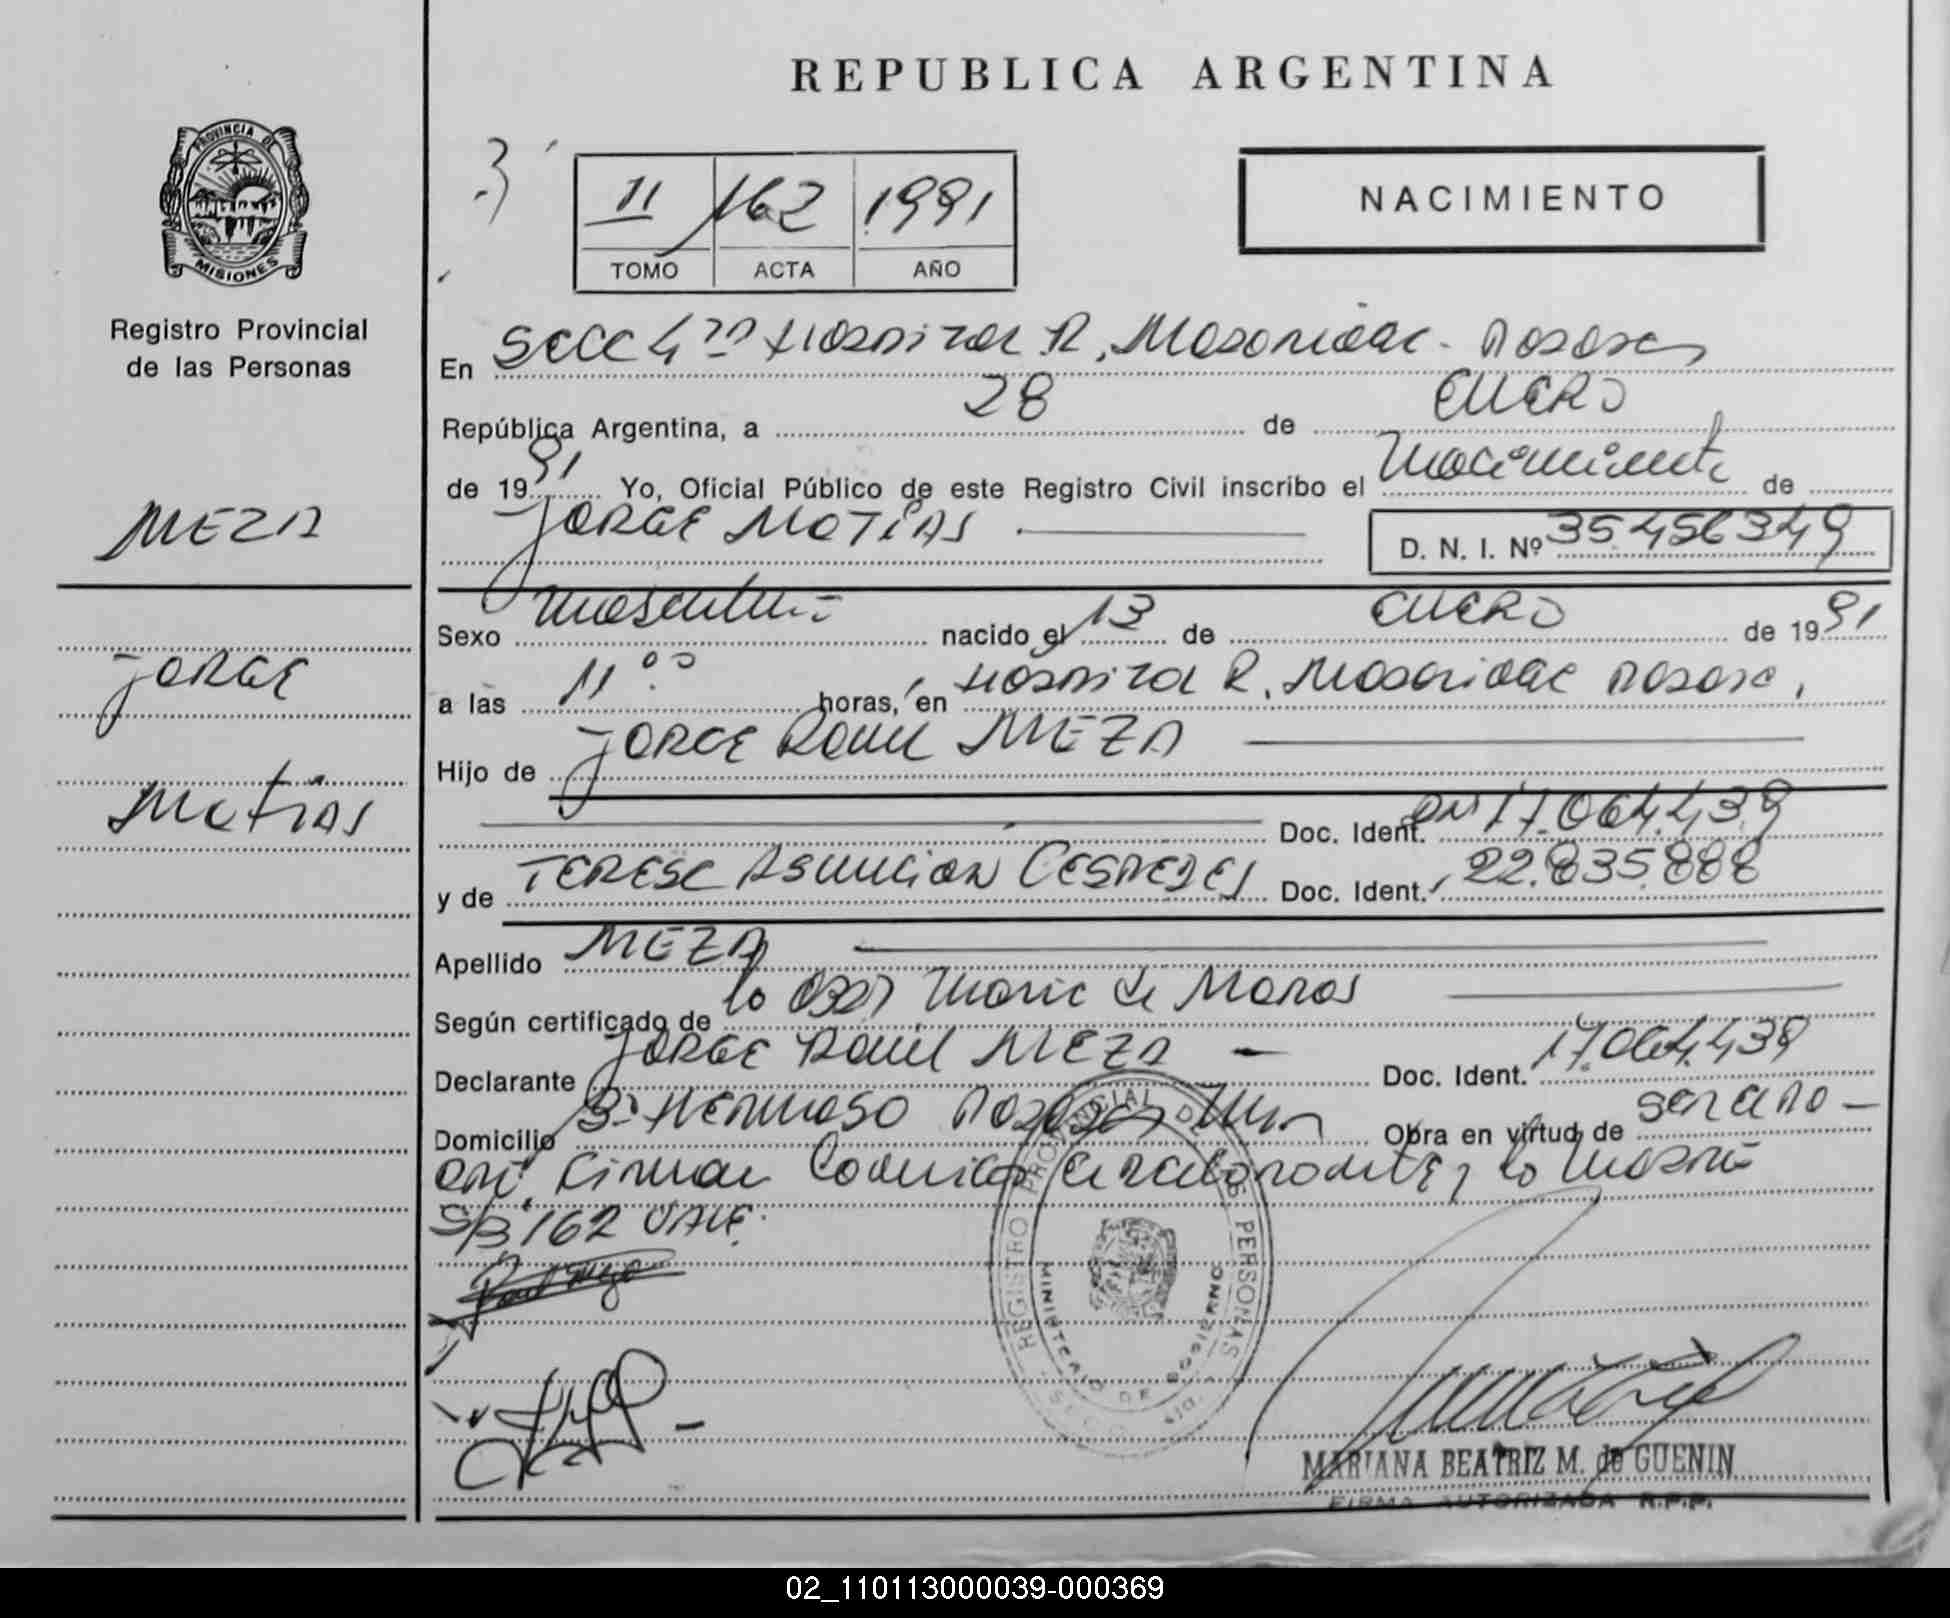 REPUBLICA ARGENTINA
PROVINCIA DE
MISIONES
Registro Provincial
de las Personas
MEZA
JORGE
Matias
II 162 1991
TOMO ACTA AÑO
NACIMIENTO
En Secc 4ta Hospital R. Madariaga - Posadas
República Argentina, a 28 de ENERO
de 1991 Yo, Oficial Público de este Registro Civil inscribo el Nacimiento de
JORGE MATIAS D. N. I. Nº 35.456.349
Sexo masculino nacido el 13 de ENERO de 1991
a las 11°° horas, en Hospital R. Madariaga Posadas.
Hijo de JORGE Raul MEZA
Doc. Ident. DNI 17.064.439
y de TERESA ASUNCION CESPEDES Doc. Ident. 22.835.888
Apellido MEZA
Según certificado de la Obst Maria de
Declarante JORGE Raul MEZA - Doc. Ident. 17.064.439
Domicilio Bº HERMOSO Posadas Mnes Obra en virtud de ser el Padre -
la Madre
S/B 162 VALE.
REGISTRO PROVINCIAL DE LAS PERSONAS
MINISTERIO DE GOBIERNO
MARIANA BEATRIZ M. de GUENIN
FIRMA AUTORIZADA R.P.P.
02_110113000039-000369